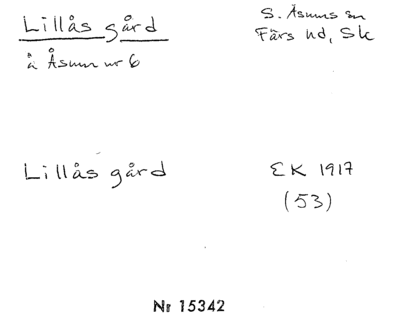 Lillås gård
S. Åsums sn
å Åsum nr 6
Färs hd, Sk
Lillås gård
EK 1917
(53)
Nr 15342